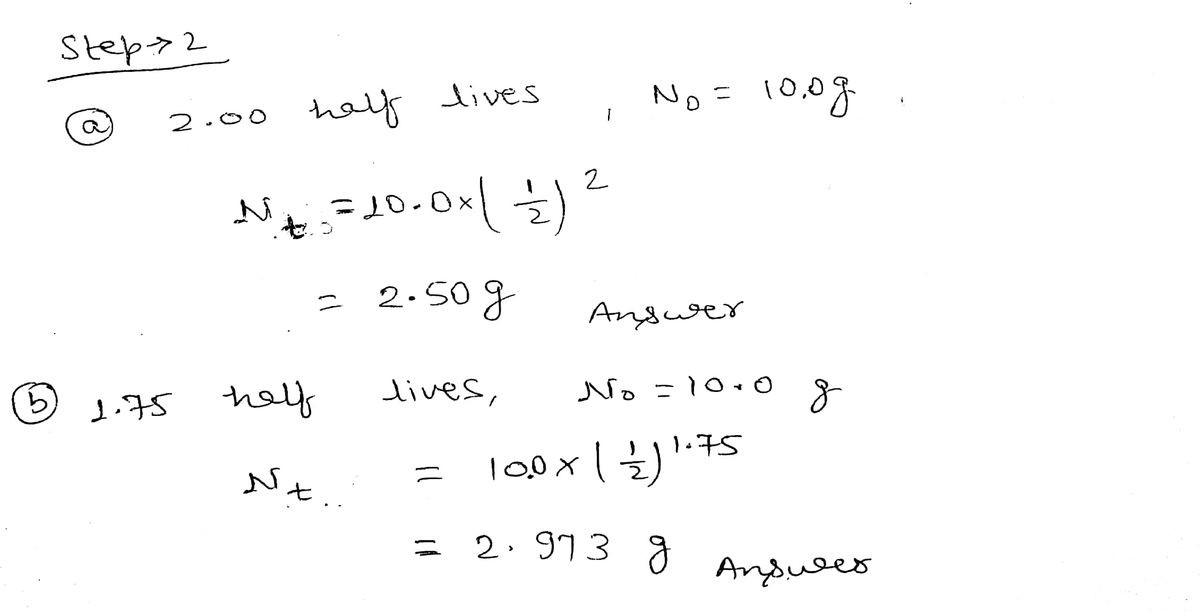 Step → 2
(a) 2.00 half lives , N₀ = 10.0g .
Nₜ = 10.0 × (1/2)²
= 2.50 g Answer
(b) 1.75 half lives, N₀ = 10.0 g
Nₜ = 10.0 × (1/2)¹·⁷⁵
= 2.973 g Answer